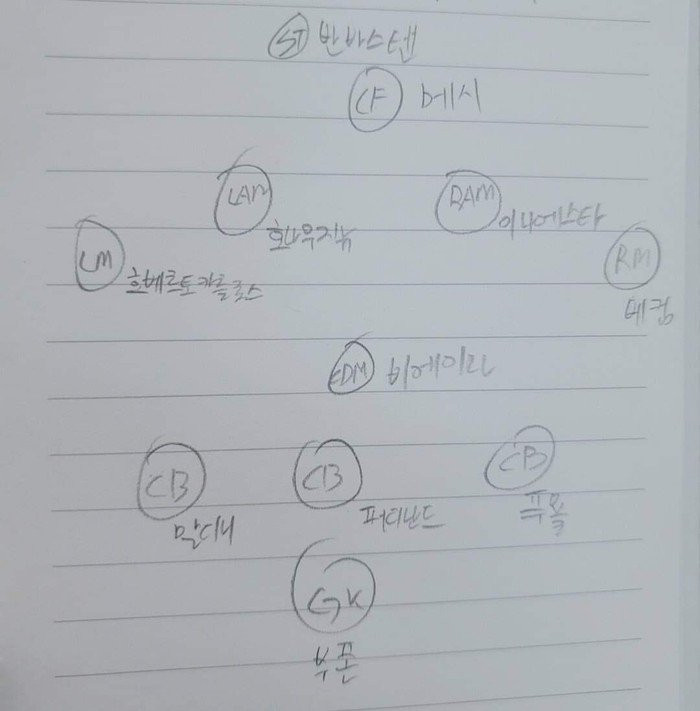 ST 반바스텐
CF 메시
LAM
RAM
호나우지뉴
이니에스타
LM
RM
호베르토카를로스
베컴
CDM 비에이라
CB
CB
CB
말디니
퍼디난드
푸욜
GK
부폰